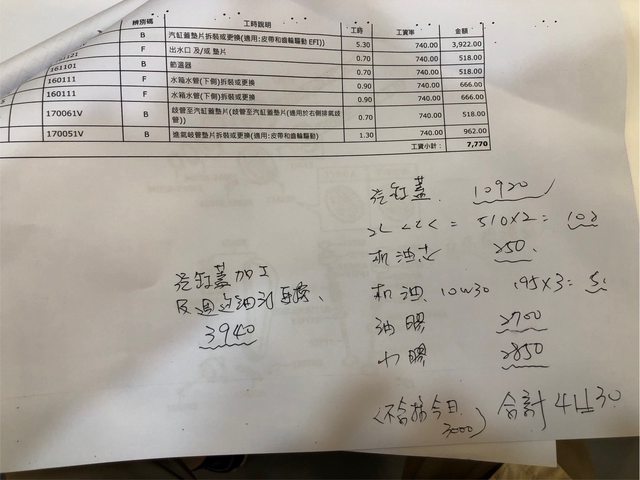 辨別碼 工時說明 工時 工資率 金額
B 汽缸蓋墊片拆裝或更換(適用:皮帶和齒輪驅動 EFI)) 5.30 740.00 3,922.00
F 出水口 及/或 墊片 0.70 740.00 518.00
161101 B 節溫器 0.70 740.00 518.00
160111 F 水箱水管(下側)拆裝或更換 0.90 740.00 666.00
160111 F 水箱水管(下側)拆裝或更換 0.90 740.00 666.00
170061V B 歧管至汽缸蓋墊片(歧管至汽缸蓋墊片(適用於右側排氣歧管)) 0.70 740.00 518.00
170051V B 進氣歧管墊片拆裝或更換(適用:皮帶和齒輪驅動) 1.30 740.00 962.00
工資小計: 7,770
汽缸蓋 10920
= 510×2= 102
机油芯 250
汽缸蓋加工
机油 10W30 195×3=5
3940
油膠 2700
水膠 2850
合計 41130
(不含稅今日
3000)